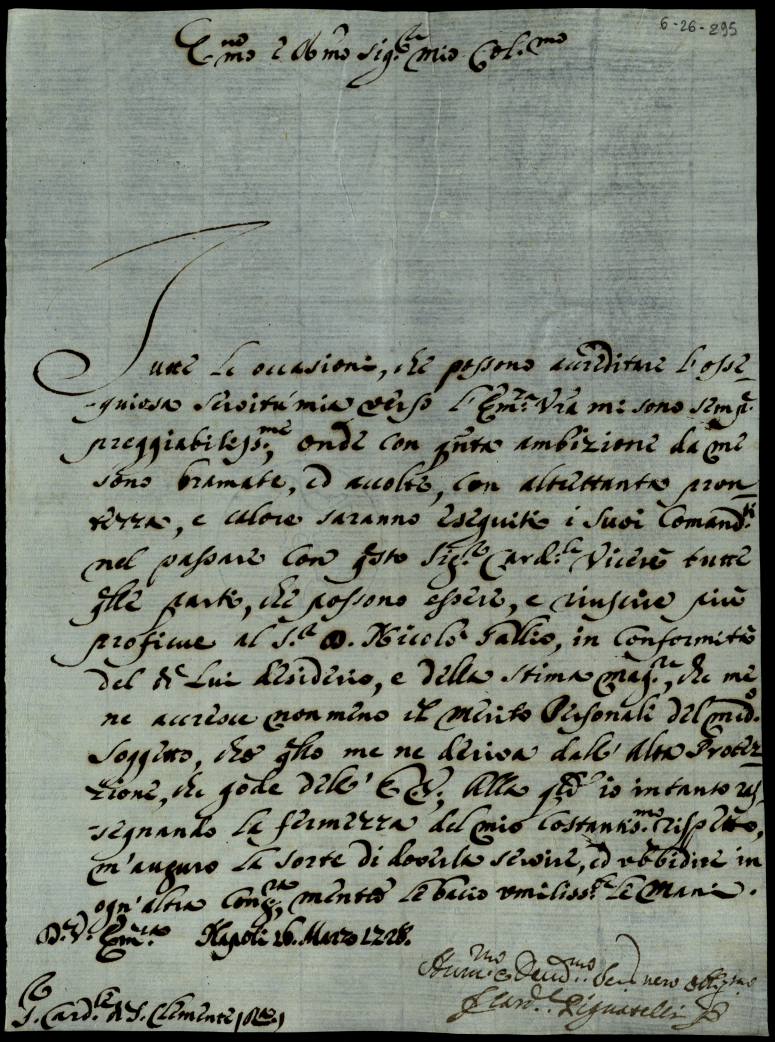 6-26-295
E.mo e R.mo Sig.re mio Col.mo
Tutte le occasioni, che possono accreditare l'osse-
quiosa servitù mia verso l'Em.za Vr̃a mi sono sempr̃
preggiabiliss.me, onde con q̃nta ambizione da me
sono bramate, ed accolte, con altrettanta pron-
tezza, e calore saranno eseguiti i Suoi Comand.ti
nel passare con q̃sto Sig.re Card.le Vicerè tutte
q̃lle parti, che possono essere, e riuscire più
proficue al S.r D. Nicolò Gallio, in conformità
del di Lui desiderio, e della stima mag.re, che me
ne accresce non meno il merito Personali del med.o
Soggetto, che q̃llo me ne deriva dall'Alta Protez-
zione, che gode dell'E.V., Alla q̃le io intanto ras-
segnando la fermezza del mio costantis.mo rispetto,
m'auguro la sorte di doverla servire, ed ubbidire in
ogn'altra cong.ra, mentre le bacio umiliss.te le Mani.
D. V. Em.za Napoli 16. Marzo 1728.
Hum.mo e Deud.mo Ser. vero
F Card.l Pignatelli
S. Card.le di S. Clemente